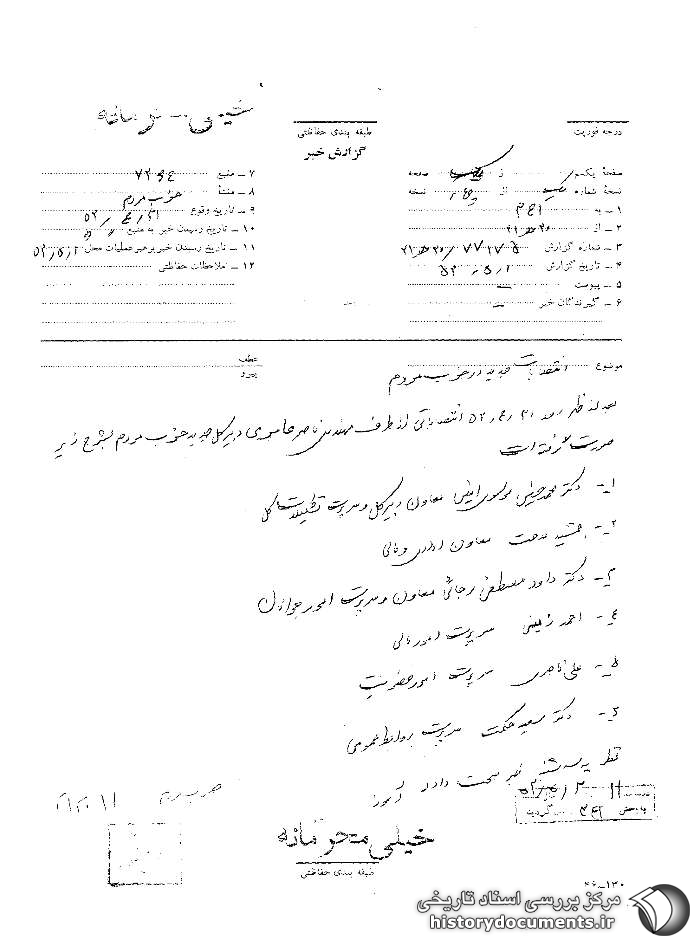 خیلی محرمانه
درجه فوریت
طبقه بندی حفاظتی
گزارش خبر
صفحهٔ یکم از یک صفحه
نسخهٔ شماره یک از نسخه
۱ – به ۳۴۱
۲ – از ۲۰ ه ۲۱
۳ – شماره گزارش ۷۷۲۷۵ / ۲۰ ه ۲۱
۴ – تاریخ گزارش ۵۲٫۵٫۱
۵ – پیوست
۶ – گیرندگان خبر
۷ – منبع
۸ – منشأ حزب مردم
۹ – تاریخ وقوع ۵۲/۴/۳۱
۱۰ – تاریخ رسیدن خبر به منبع
۱۱ – تاریخ رسیدن خبر برهبر عملیات محل ۵۲٫۵٫۱
۱۲ – ملاحظات حفاظتی
موضوع انتصابات جدید در حزب مردم
عطف
پیرو
بعد از ظهر روز ۳۱/۴/۵۲ انتصاباتی از طرف مهندس ناصر عامری دبیر کل جدید حزب مردم بشرح زیر
صورت گرفته است
۱- دکتر محمد حسین موسوی معاون دبیر کل و سرپرست تشکیلات کل
۲- جمشید معاون اداری و مالی
۳- دکتر داود مصطفی رجائی معاون و سرپرست امور جوانان
۴- احمد سرپرست امور مالی
۵- علی سرپرست امور عضویت
۶- دکتر سعید حکمت سرپرست روابط عمومی
نظریه خبر صحت دارد
حزب مردم
بایگانی ۳۴۱ گردید
خیلی محرمانه
طبقه بندی حفاظتی
۴۶-۱۳۰
مرکز بررسی اسناد تاریخی
historydocuments.ir